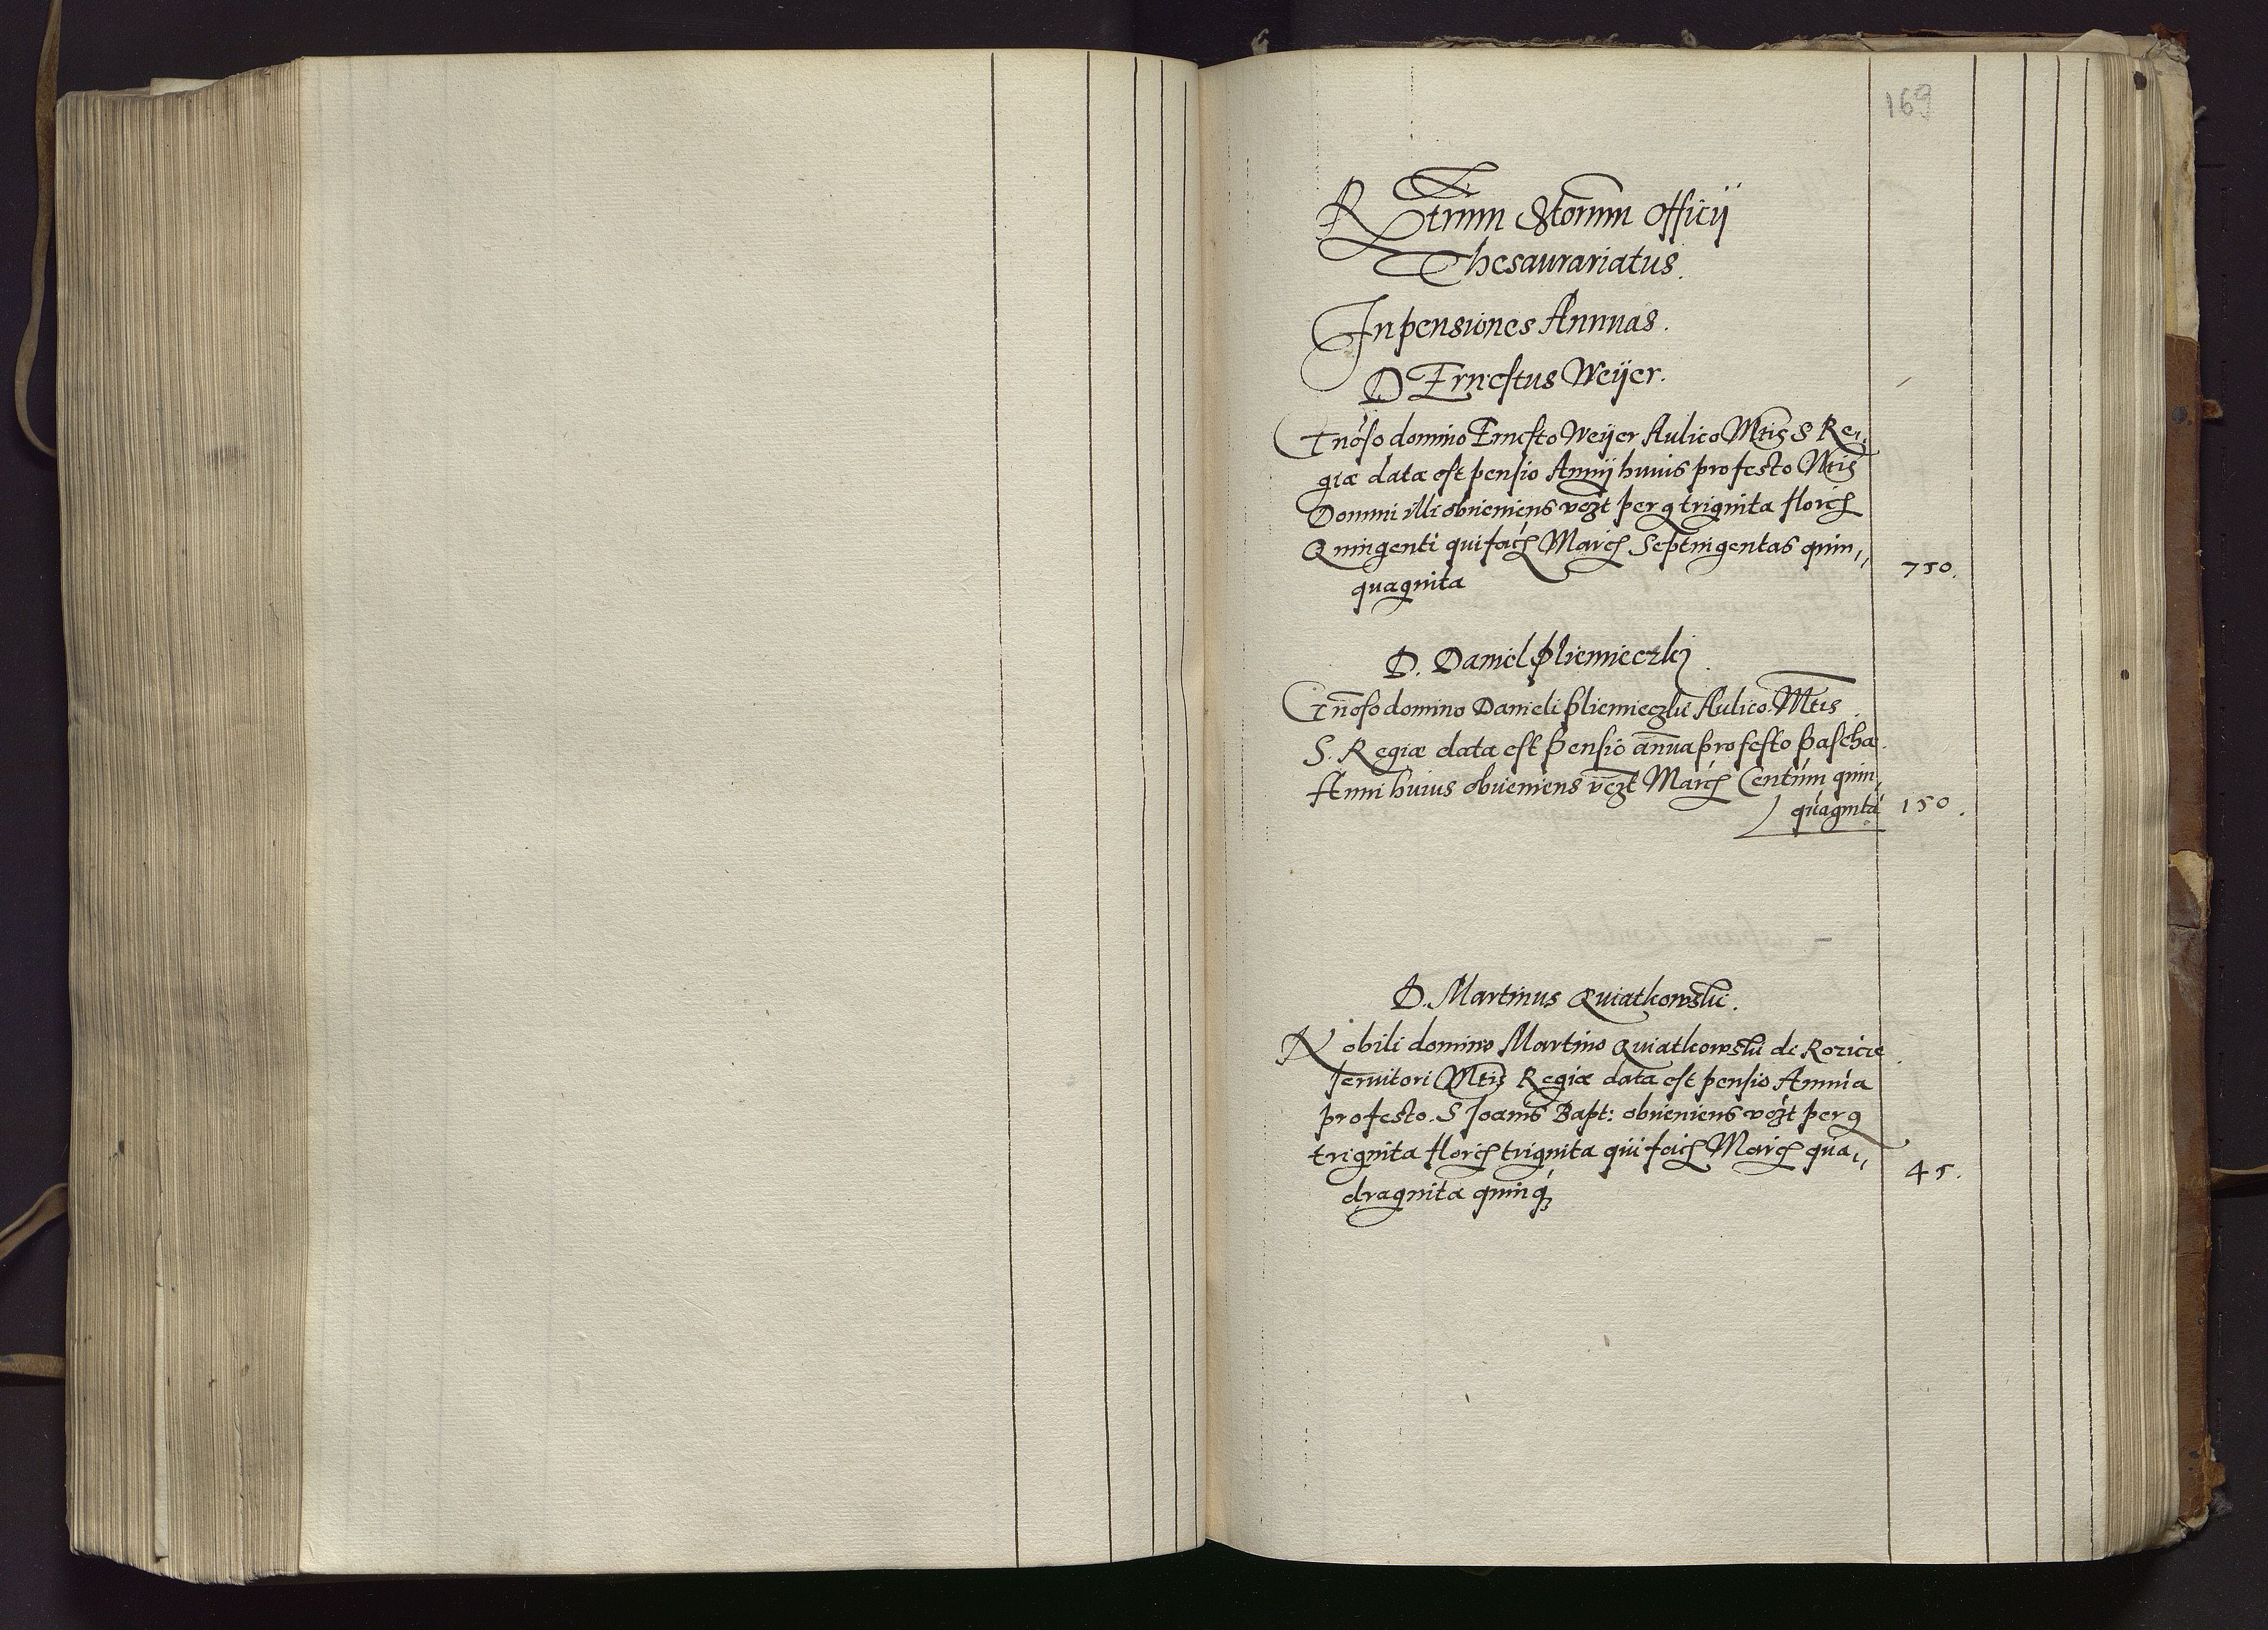 169
Rtrum Extorum Officij
Thesaurariatus.
In pensiones Annuas.
D Ernestus Weijer.
Gnoso domino Ernesto Weijer Aulico Mtis S Re,,
giæ data est pensio Annij huius pro festo Ntis
Domini illi obueniens vczt per g triginta florch
Quingenti qui facih March Septingentas quin,,
quaginta
750.
D. Daniel Pliemieczkj
Gnoso domino Danieli Pliemieczki Aulico Mtis
S. Regiæ data est pensio annua pro festo Paschæ
Anni huius obueniens vczt March Centum quin,
quaginta
150.
D. Martinus Quiatkowski.
Nobili domino Martino Quiatkowski de Rozicze
seruitori Mtis Regiæ data est pensio Annua
pro festo. S Joanis Bapt: obueniens vczt per g
triginta florch triginta qui facih March qua,,
draginta quinq3
45.